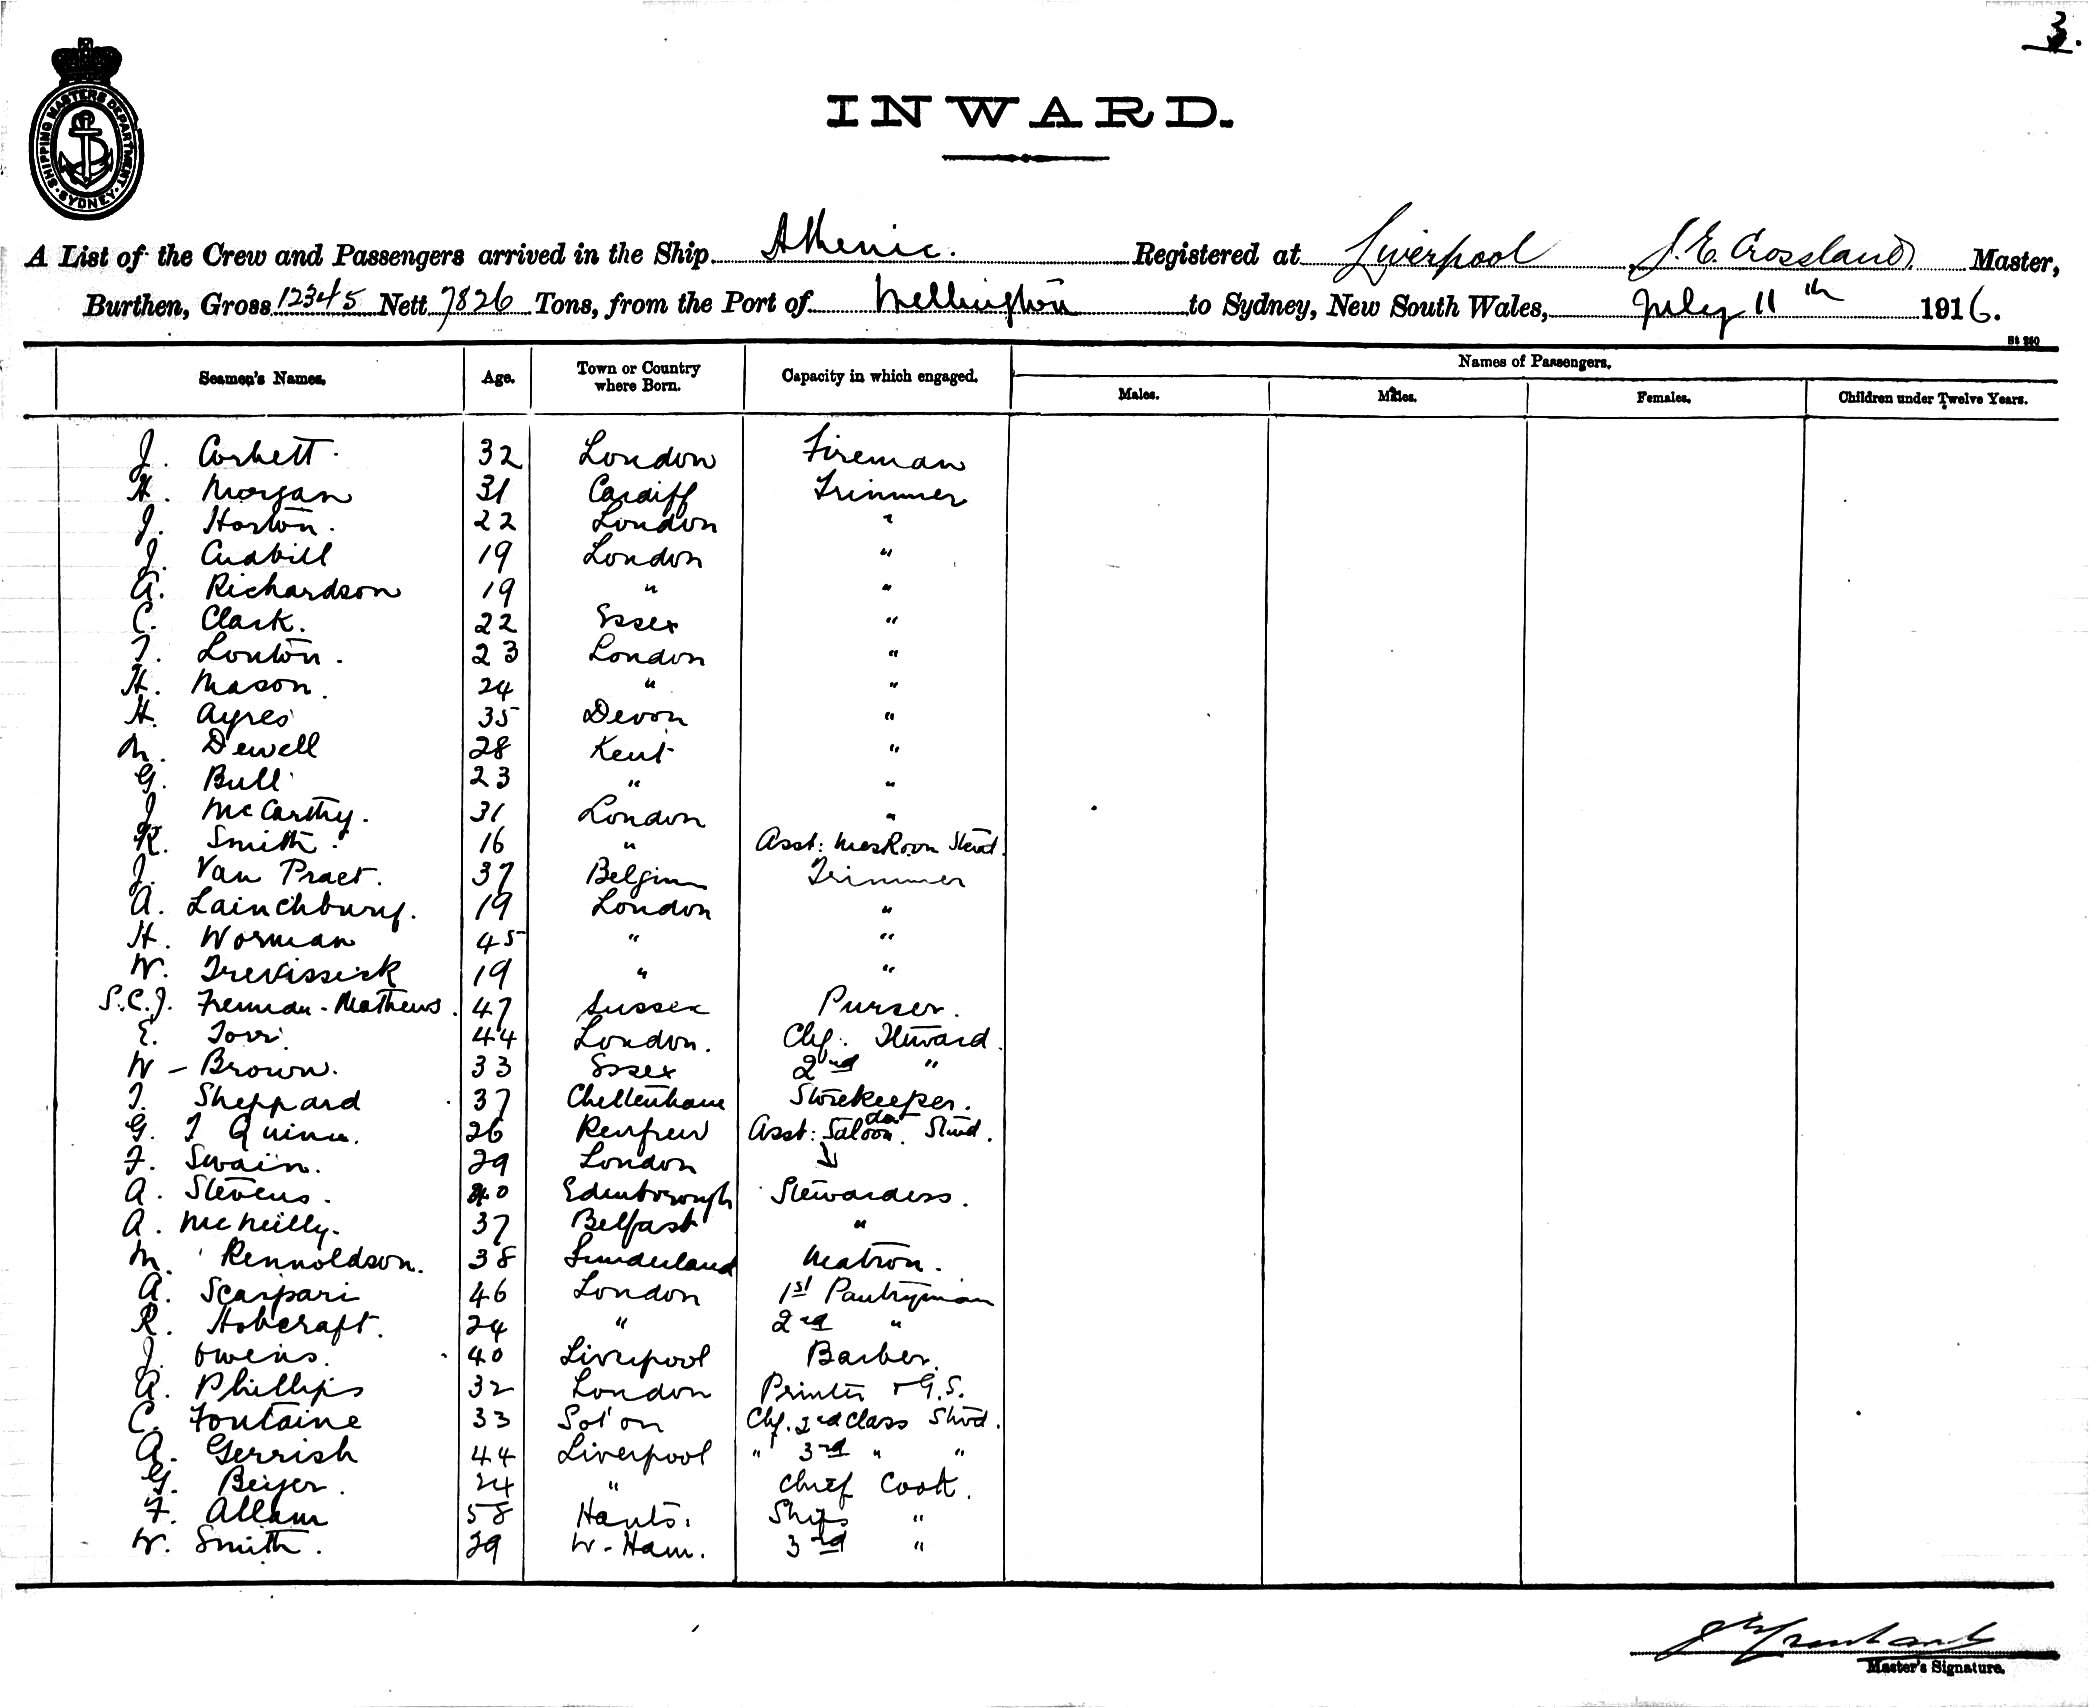 3.
SHIPPING MASTERS DEPARTMENT
SYDNEY
INWARD.
A List of the Crew and Passengers arrived in the Ship Athenic. Registered at Liverpool J. E. Crossland. Master,
Burthen, Gross 12345 Nett 7826 Tons, from the Port of Wellington to Sydney, New South Wales, July 11th 1916.
Seamen's Names. Age. Town or Country where Born. Capacity in which engaged. Names of Passengers.
Males. Males. Females. Children under Twelve Years.
J. Corbett. 32 London Fireman
H. Morgan 31 Cardiff Trimmer
J. Horton. 22 London "
J. Cudbill 19 London "
A. Richardson 19 " "
C. Clark. 22 Essex "
T. Louton. 23 London "
H. Mason. 24 " "
H. Ayres 35 Devon "
M. Dewell 28 Kent "
G. Bull 23 " "
J McCarthy. 31 London "
R. Smith. 16 " Asst: MessRoom Stewd.
J. Van Praet. 37 Belgium Trimmer
A. Lainchbury. 19 London "
H. Worman 45 " "
W. Trevissick 19 " "
S.C.J. Freeman-Mathews. 47 Sussex Purser.
E. Torr. 44 London. Chf. Steward.
W - Brown. 33 Essex 2nd "
T. Sheppard 37 Cheltenham Storekeeper.
G. T Quinn. 26 Renfrew Asst: Saloon Stwd.
F. Swain. 29 London
A. Stevens. 40 Edinborough Stewardess.
A. McNeilly. 37 Belfast "
M. Rennoldson. 38 Sunderland Matron.
A. Scarpari 46 London 1st Pantryman
R. Hobcraft. 24 " 2nd "
J. Owens. 40 Liverpool Barber.
A. Phillips 32 London Printer & G.S.
C. Fontaine 33 Sot'on Chf. 2nd Class Stwd.
A. Gerrish 44 Liverpool " 3rd " "
G. Beyer. 24 " Chief Cook.
F. Allam 58 Hants. Ships "
W. Smith. 29 W-Ham. 3rd "
Master's Signature.